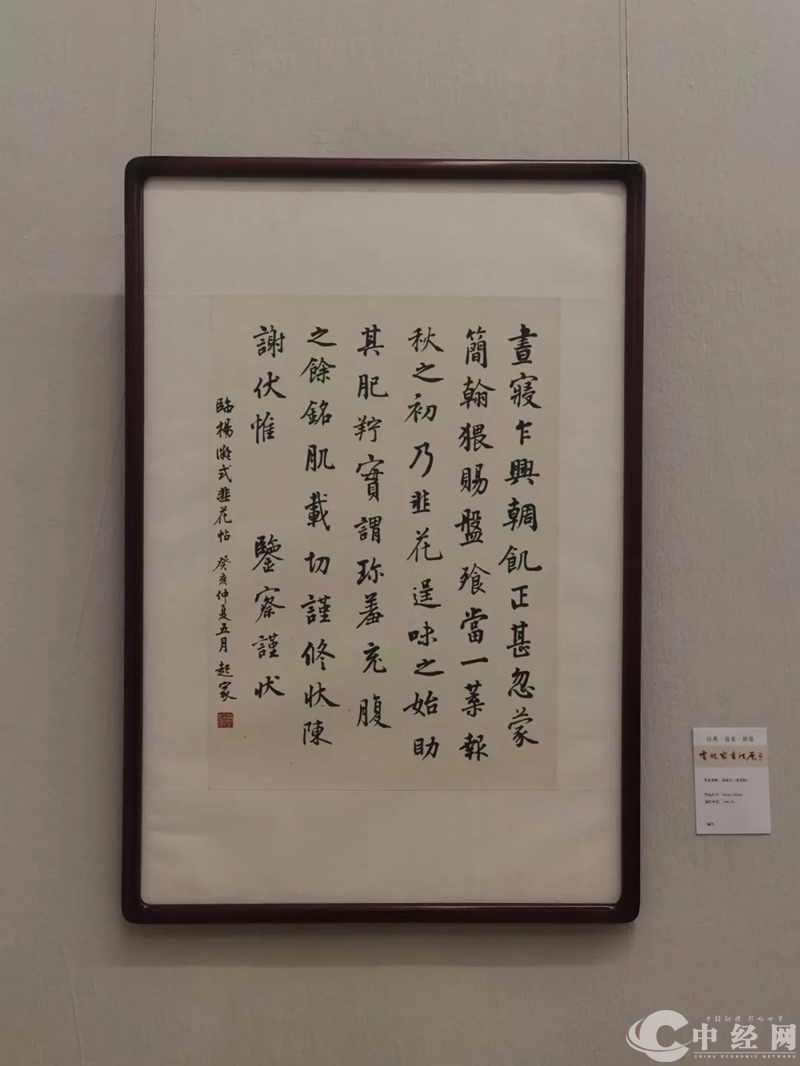 晝寢乍興輖飢正甚忽蒙
簡翰猥賜盤飧當一葉報
秋之初乃韭花逞味之始助
其肥羜實謂珍羞充腹
之餘銘肌載切謹修狀陳
謝伏惟 鑒察謹狀
臨楊凝式韭花帖 癸亥仲夏五月 起家
中经网
CHINA ECONOMIC NETWORK